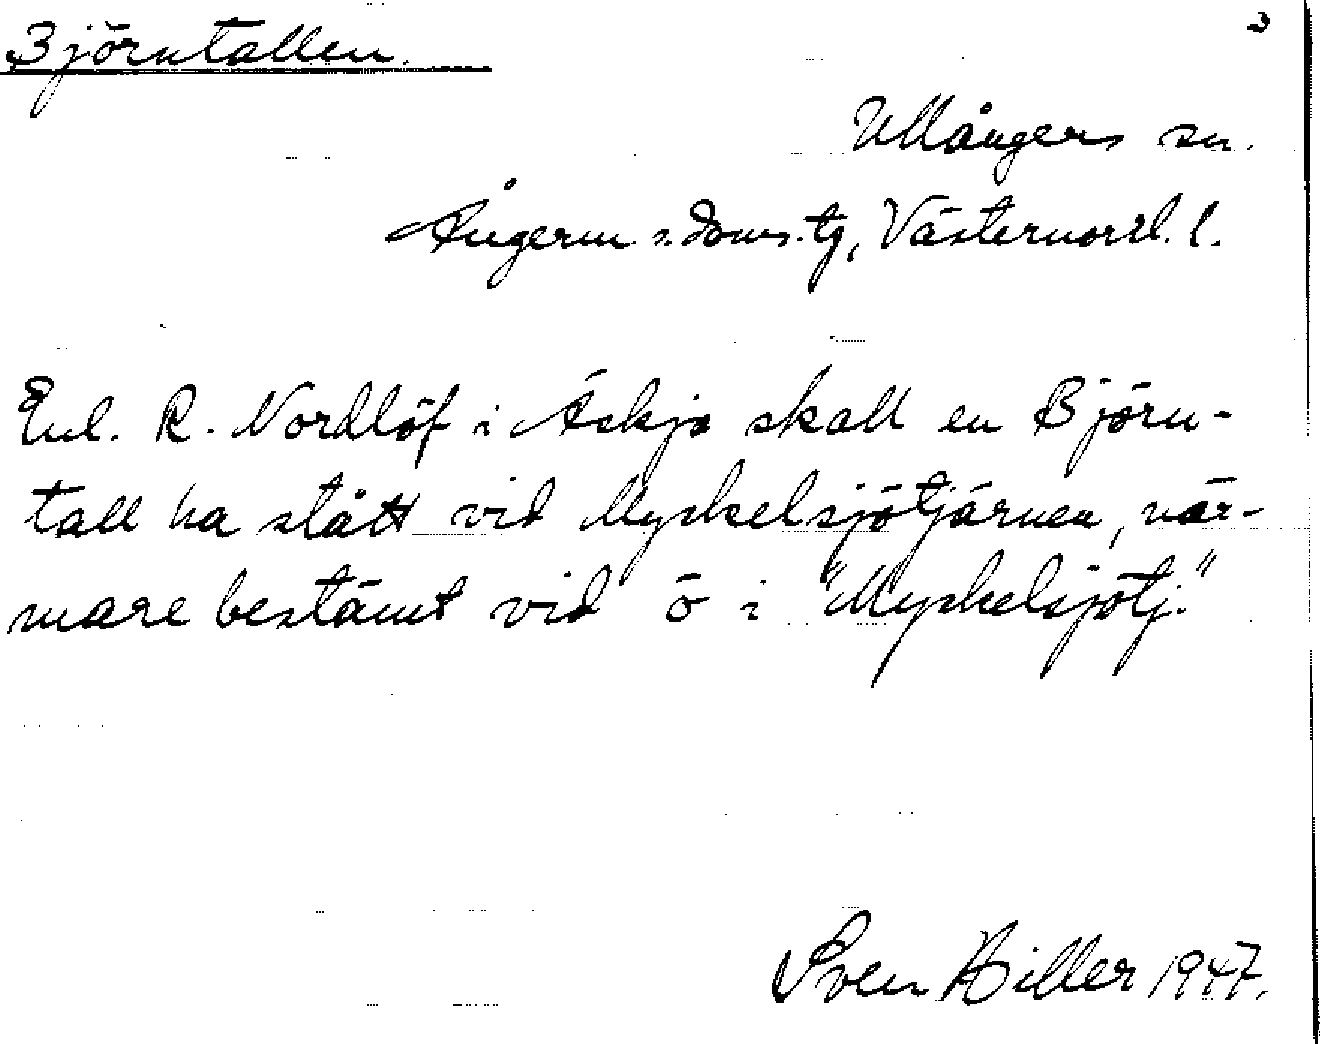 Björntallen.
3
Ullångers sn.
Ångerm. s. doms. tg, Västernorrl. l.
Enl. R. Nordlöf i Äskja skall en Björn-
tall ha stått vid Myckelsjötjärnen, när-
mare bestämt vid ö i "Myckelsjötj."
Sven Hiller 1947.